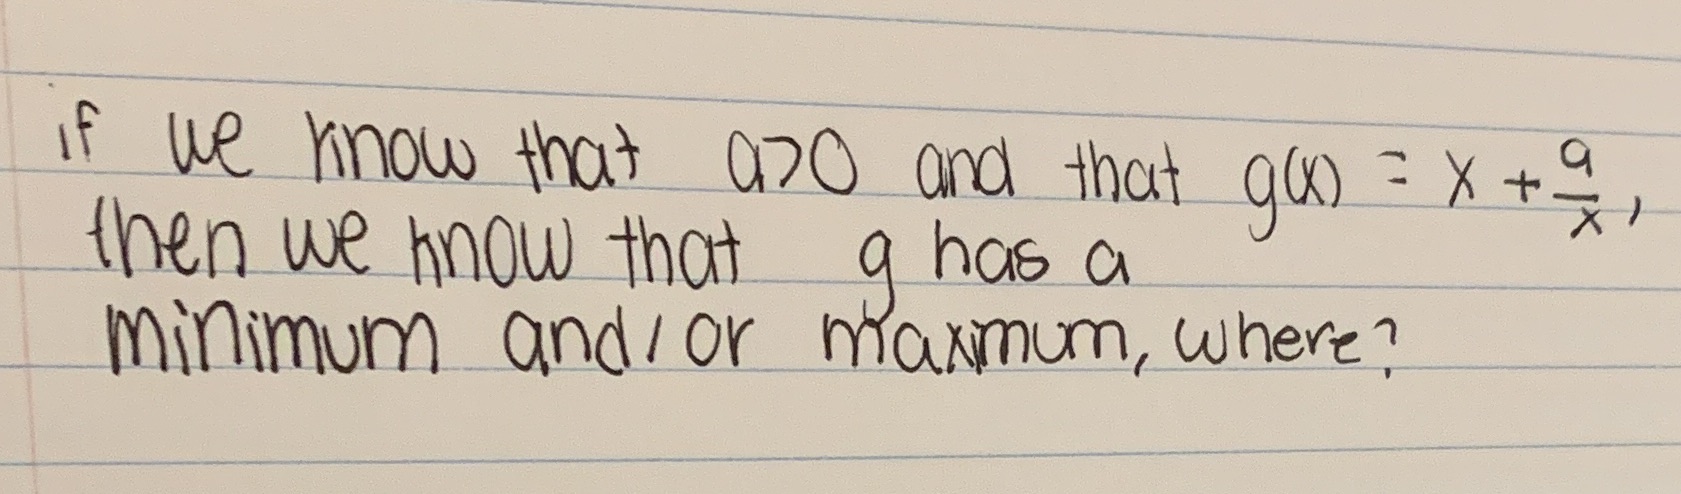 if we know that a>0 and that g(x) = x + a/x,
then we know that g has a
minimum and/or maximum, where?